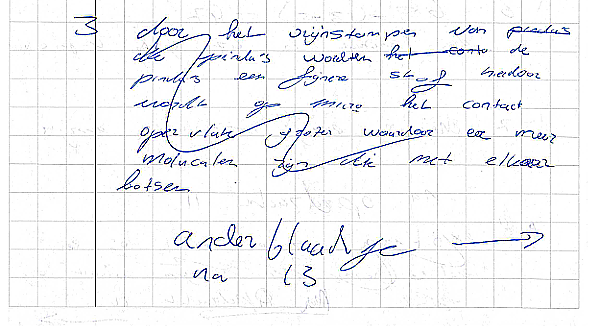 3 door het vijnstampen van pindas
die pinda's worden het conta de
pindas een fijnere stof hierdoor
wordt op micro het contact
oper vlakte groter waardoor er meer
moluculen zijn die met elkaar
botsen
ander blaadje →
na 13